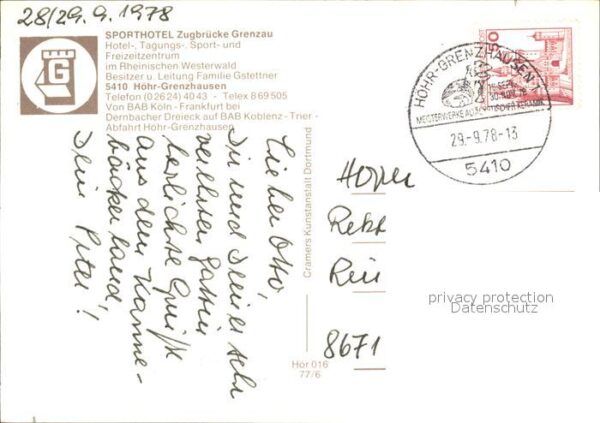 28/29.9.1978
SPORTHOTEL Zugbrücke Grenzau
Hotel-, Tagungs-, Sport- und
Freizeitzentrum
im Rheinischen Westerwald
Besitzer u. Leitung Familie Gstettner
5410 Höhr-Grenzhausen
Telefon (02624) 4043 - Telex 869505
Von BAB Köln - Frankfurt bei
Dernbacher Dreieck auf BAB Koblenz - Trier -
Abfahrt Höhr-Grenzhausen
G
Lieber Otto,
Dir und Deiner sehr
verehrten Gattin
herzlichste Grüße
aus dem Kanne-
bäckerland
Dein Peter!
Cramers Kunstanstalt Dortmund
Hör 016
77/6
HÖHR-GRENZHAUSEN 1
MEISTERWERKE
KERAMIK
29.-9.78-13
5410
Rekt
8671
privacy protection
Datenschutz